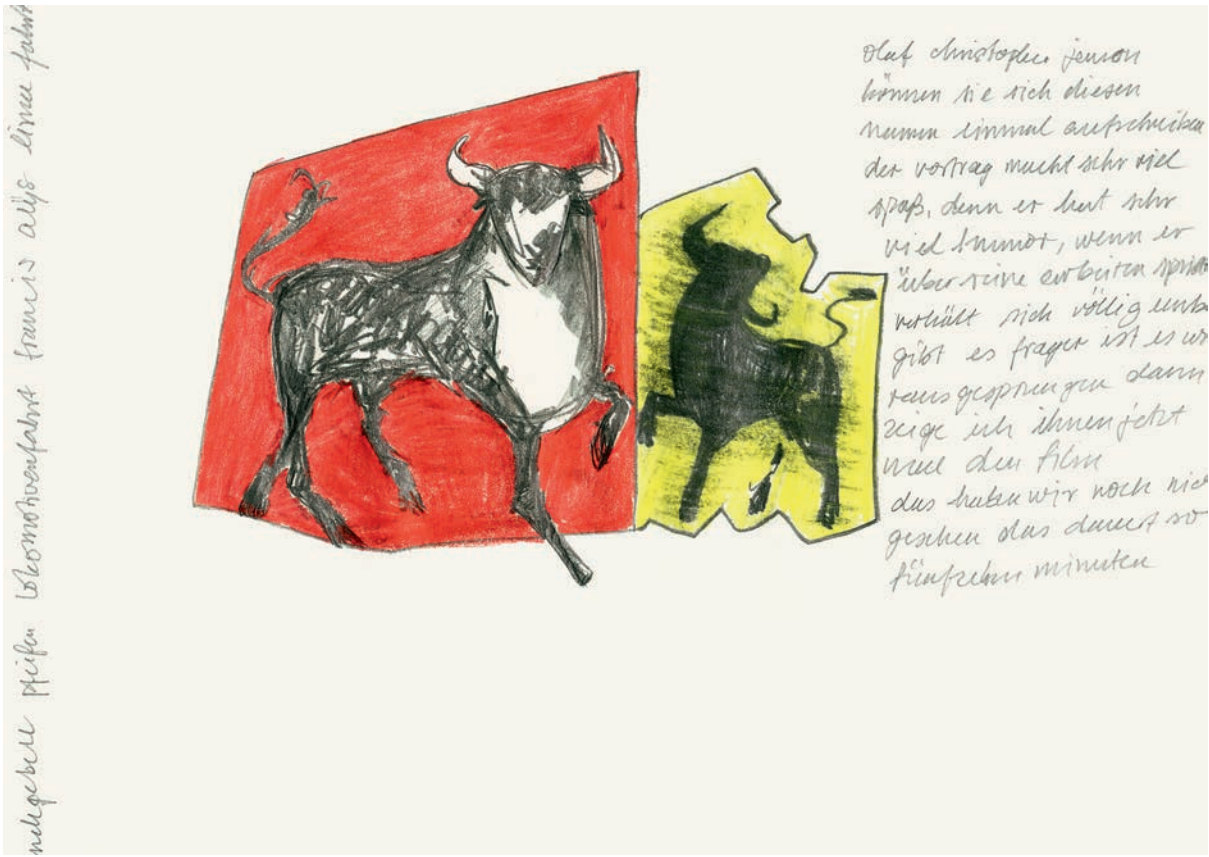 olaf christopher jenssen
können sie sich diesen
namen einmal aufschreiben
der vortrag macht sehr viel
spaß, denn er hat sehr
viel humor, wenn er
über seine arbeiten
verhält sich völlig
gibt es fragen ist es
rausgesprungen dann
zeige ich ihnen jetzt
mal den film
das haben wir noch
gesehen das dauert so
fünfzehn minuten
pfeifen lokomotivenfahrt francis alÿs linie fahrt